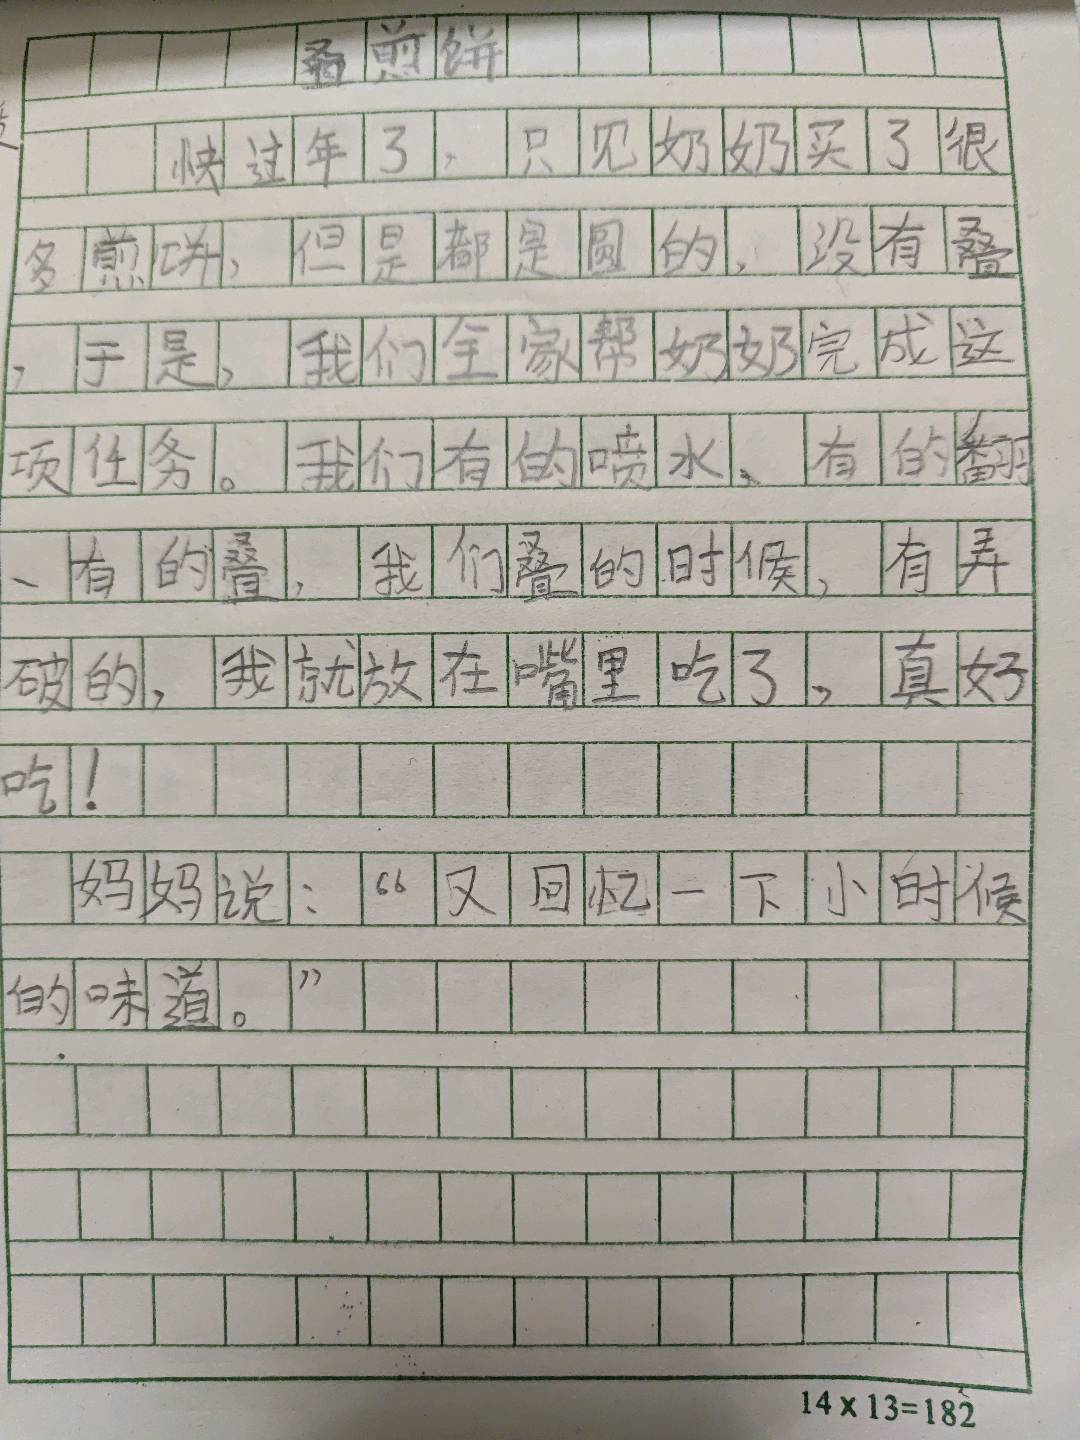 叠煎饼
快过年了，只见奶奶买了很
多煎饼，但是都是圆的，没有叠
，于是，我们全家帮奶奶完成这
项任务。我们有的喷水、有的翻
、有的叠，我们叠的时候，有弄
破的，我就放在嘴里吃了，真好
吃！
妈妈说：“又回忆一下小时候
的味道。”
14×13=182